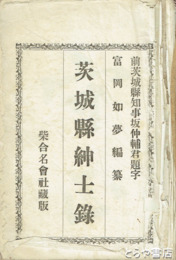 前茨城縣知事坂仲輔君題字
富岡如夢編纂
茨城縣紳士錄
榮合名會社藏版
とらや書店